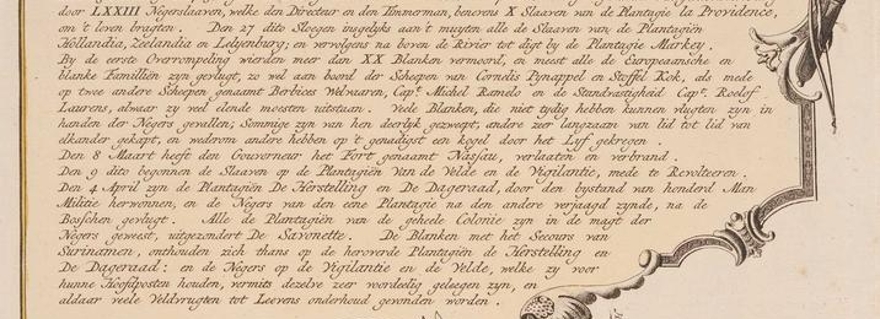 door LXXIII Negerslaaven, welke den Directeur en den Timmerman, benevens X Slaaven van de Plantagie la Providence,
om 't leven bragten. Den 27 dito Sloegen insgelyks aan't muyten alle de Slaaven van de Plantagiën
Hollandia, Zeelandia en Lelyenburg; en vervolgens na boven de Rivier tot digt by de Plantagie Markey.
By de eerste Overrompeling wierden meer dan XX Blanken vermoord, en meest alle de Europeaansche en
blanke Familliën zyn gevlugt, zo wel aan boord der Scheepen van Cornelis Pynappel en Stoffel Kok, als mede
op twee andere Scheepen genaamt Berbices Welvaaren, Capt. Michel Ramelo en de Standvastigheid Capt. Roelof
Laurens, alwaar zy veel elende moesten uitstaan. Veele Blanken, die niet tydig hebben kunnen vlugten zyn in
handen der Negers gevallen; Sommige zyn van hen deerlyk gezweept, andere zeer langzaam van lid tot lid van
elkander gekapt, en wederom andere hebben op 't genadigst een kogel door het Lyf gekregen.
Den 8 Maart heeft den Gouverneur het Fort genaamt Nassau, verlaaten en verbrand.
Den 9 dito begonnen de Slaaven op de Plantagiën Van de Velde en de Vigilantie, mede te Revolteeren.
Den 4 April zyn de Plantagiën De Herstelling en De Dageraad, door den bystand van honderd Man
Militie herwonnen, en de Negers van den eene Plantagie na den andere verjaagd zynde, na de
Bosschen gevlugt. Alle de Plantagiën van de geheele Colonie zyn in de magt der
Negers geweest, uitgezondert De Savonette. De Blanken met het Secours van
Surinamen, onthouden zich thans op de heroverde Plantagiën de Herstelling en
De Dageraad: en de Negers op de Vigilantie en de Velde, welke zy voor
hunne Hoofdposten houden, vermits dezelve zeer voordeelig geleegen zyn, en
aldaar veele Veldvrugten tot Leevens onderhoud gevonden worden.